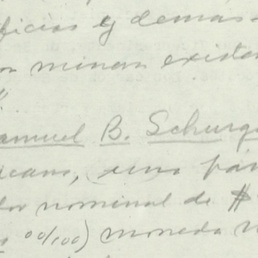 ficios y demas
minas exist
amuel B. Schurg
icano, una par
or nominal de $
00/100) moneda n